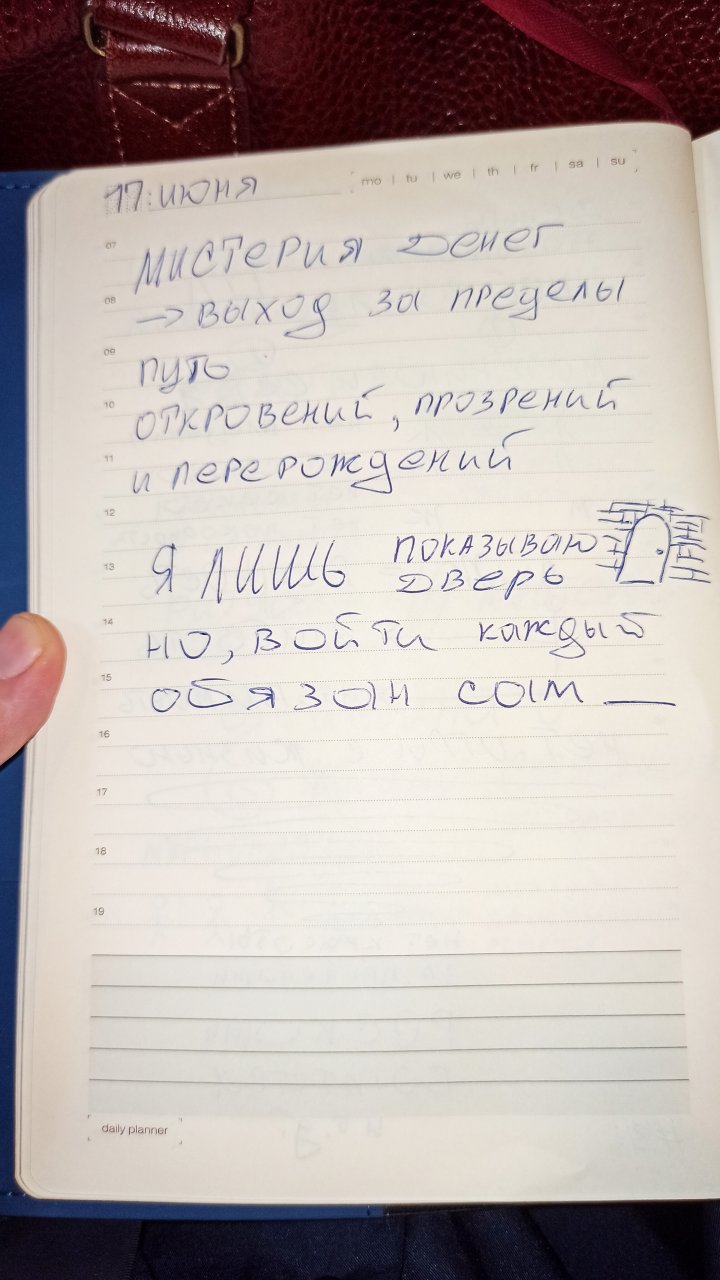 17 июня
mo | tu | we | th | fr | sa | su
07
Мистерия денег
08
→ выход за пределы
09
путь
10
откровений, прозрений
11
и перерождений
12
13
Я лишь показываю
дверь
14
но, войти каждый
15
обязан сам
16
17
18
19
daily planner